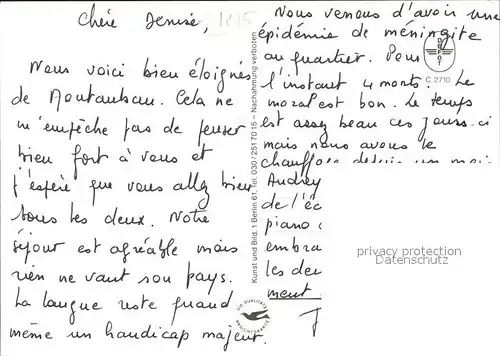 Chère Denise,
Nous voici bien éloignés
de Montauban. Cela ne
m'empêche pas de penser
bien fort à vous et
j'espère que vous allez bien
tous les deux. Notre
séjour est agréable mais
rien ne vaut son pays.
La langue reste quand
même un handicap majeur.
Nous venons d'avoir une
épidémie de méningite
au quartier. Pour
l'instant 4 morts. Le
moral est bon. Le temps
est assez beau ces jours-ci
mais nous avons le
chauffage depuis un mois
Audrey
de l'éc
piano
embra
les deu
ment
Kunst und Bild, 1 Berlin 61, Tel. 030/251 70 15 – Nachahmung verboten
C 2710
privacy protection
Datenschutz